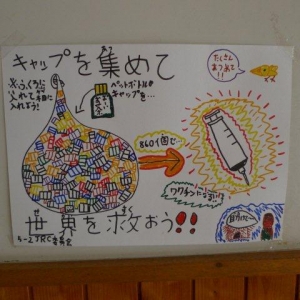 キャップを集めて
たくさん
あつめて!!
※ふくろに
入れて箱に
入れよう!
ペットボトルの
キャップを…
860個で
ワクチンに
世界を救おう!!
せかい
すく
5-2 JRC委員会